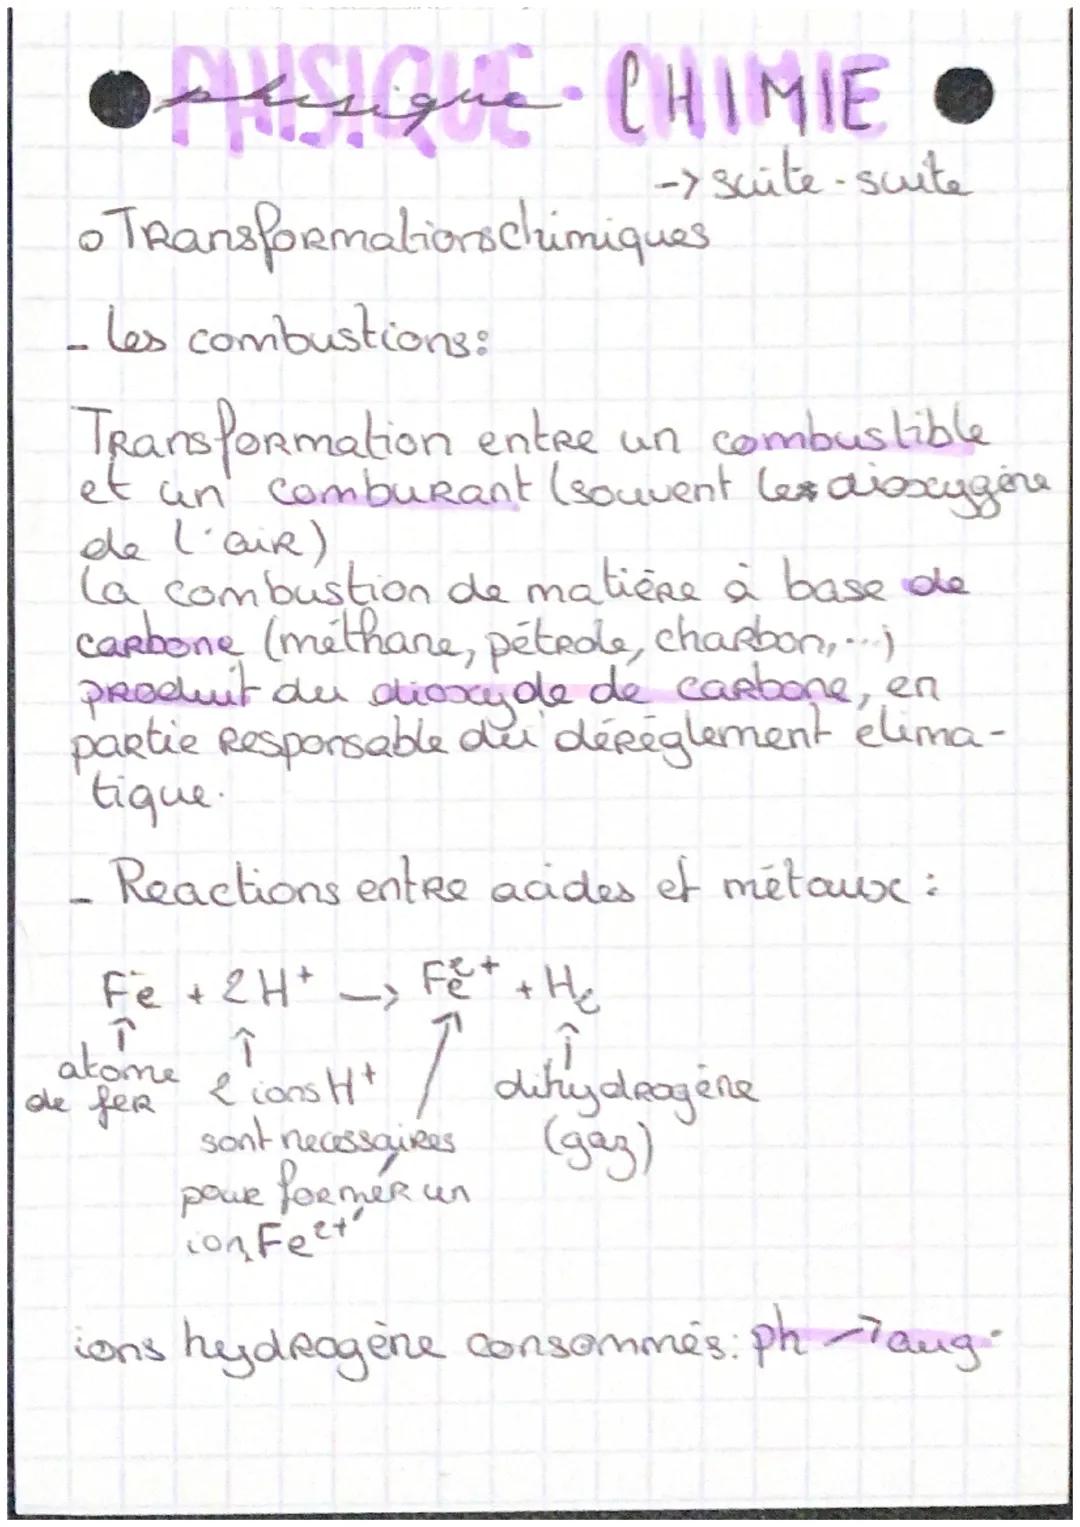 phisique - CHIMIE
-> suite - suite
o Transformations chimiques
- les combustions:
Transformation entre un combustible
et un comburant (souvent le dioxygène
de l'air)
la combustion de matière à base de
carbone (méthane, pétrole, charbon,...)
produit du dioxyde de carbone, en
partie responsable du déréglement clima-
tique.
- Reactions entre acides et métaux :
Fe + 2H⁺ -> Fe²⁺ + H₂
↑ ↑ ↑ ↑
atome de fer
2 ions H⁺
sont necessaires
pour former un
ion Fe²⁺
dihydrogène
(gaz)
ions hydrogène consommés: ph -> aug.